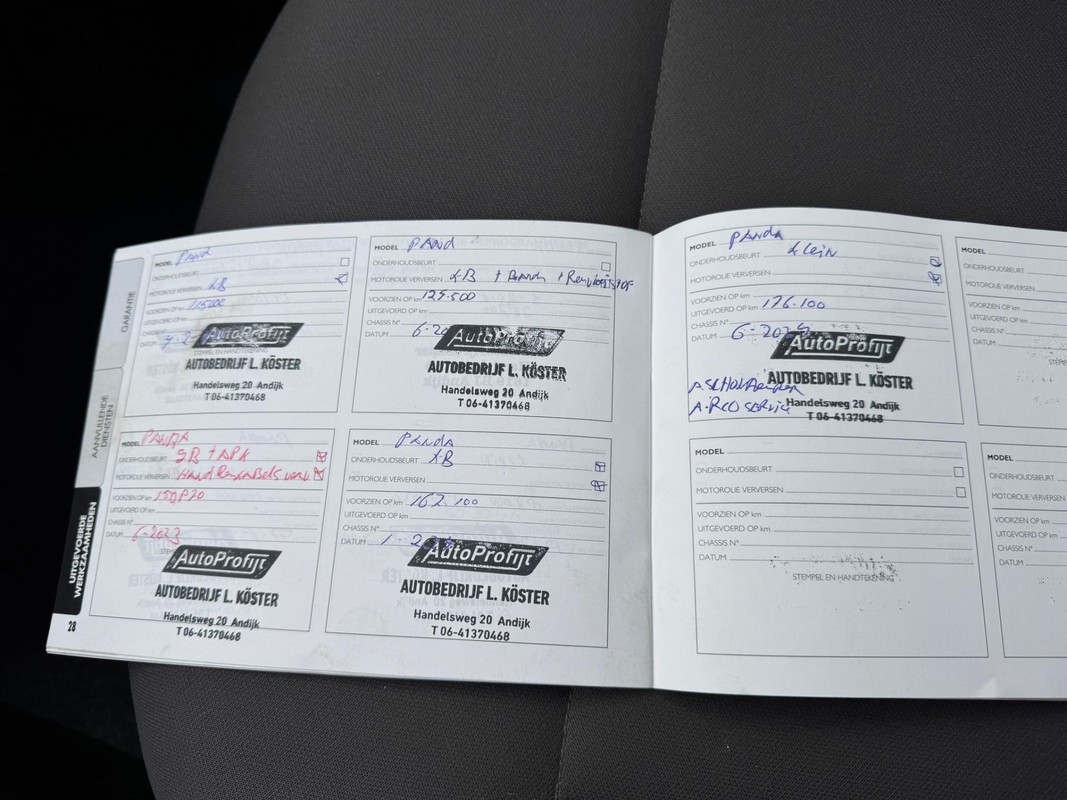 GARANTIE
AANVULLENDE
DIENSTEN
UITGEVOERDE
WERKZAAMHEDEN
28
MODEL PAND
ONDERHOUDSBEURT
MOTOROLIE VERVERSEN
VOORZIEN OP km
UITGEVOERD OP km
CHASSIS N°
DATUM
AutoProfijt
STEMPEL EN HANDTEKENING
AUTOBEDRIJF L. KÖSTER
Handelsweg 20 Andijk
T 06-41370468
MODEL PAND
ONDERHOUDSBEURT
MOTOROLIE VERVERSEN
VOORZIEN OP km 129.500
UITGEVOERD OP km
CHASSIS N°
DATUM 6-20
AutoProfijt
AUTOBEDRIJF L. KÖSTER
Handelsweg 20 Andijk
T 06-41370468
MODEL PANDA
ONDERHOUDSBEURT GB + APK
MOTOROLIE VERVERSEN
VOORZIEN OP km
UITGEVOERD OP km
CHASSIS N°
DATUM 6-2023
AutoProfijt
AUTOBEDRIJF L. KÖSTER
Handelsweg 20 Andijk
T 06-41370468
MODEL PANDA
ONDERHOUDSBEURT
MOTOROLIE VERVERSEN
VOORZIEN OP km 162.100
UITGEVOERD OP km
CHASSIS N°
DATUM 1-2
AutoProfijt
AUTOBEDRIJF L. KÖSTER
Handelsweg 20 Andijk
T 06-41370468
MODEL PANDA
ONDERHOUDSBEURT KLEIN
MOTOROLIE VERVERSEN
VOORZIEN OP km 176.100
UITGEVOERD OP km
CHASSIS N°
DATUM 6-2024
AutoProfijt
AUTOBEDRIJF L. KÖSTER
Handelsweg 20 Andijk
T 06-41370468
MODEL
ONDERHOUDSBEURT
MOTOROLIE VERVERSEN
VOORZIEN OP km
UITGEVOERD OP km
CHASSIS N°
DATUM
STEMPEL EN HANDTEKENING
MODEL
ONDERHOUDSBEURT
MOTOROLIE VERVERSEN
VOORZIEN OP km
UITGEVOERD OP km
CHASSIS N°
DATUM
MODEL
ONDERHOUDSBEURT
MOTOROLIE VERVERSEN
VOORZIEN OP km
UITGEVOERD OP km
CHASSIS N°
DATUM